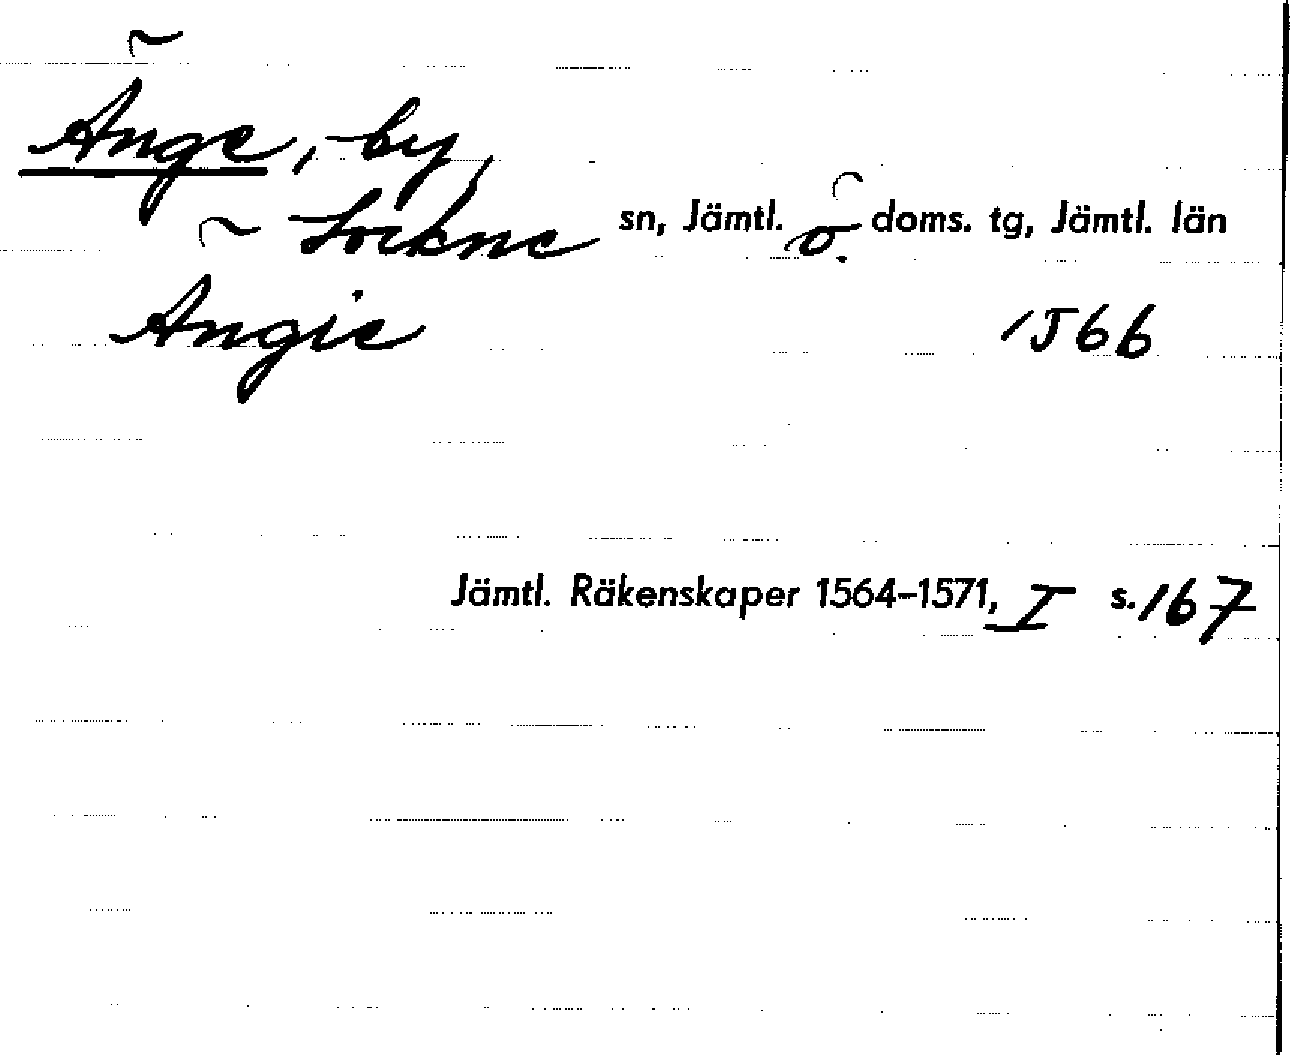 Änge, by,
Lockne sn, Jämtl. ö. doms. tg, Jämtl. län
Ängie 1566
Jämtl. Räkenskaper 1564–1571, I s. 167